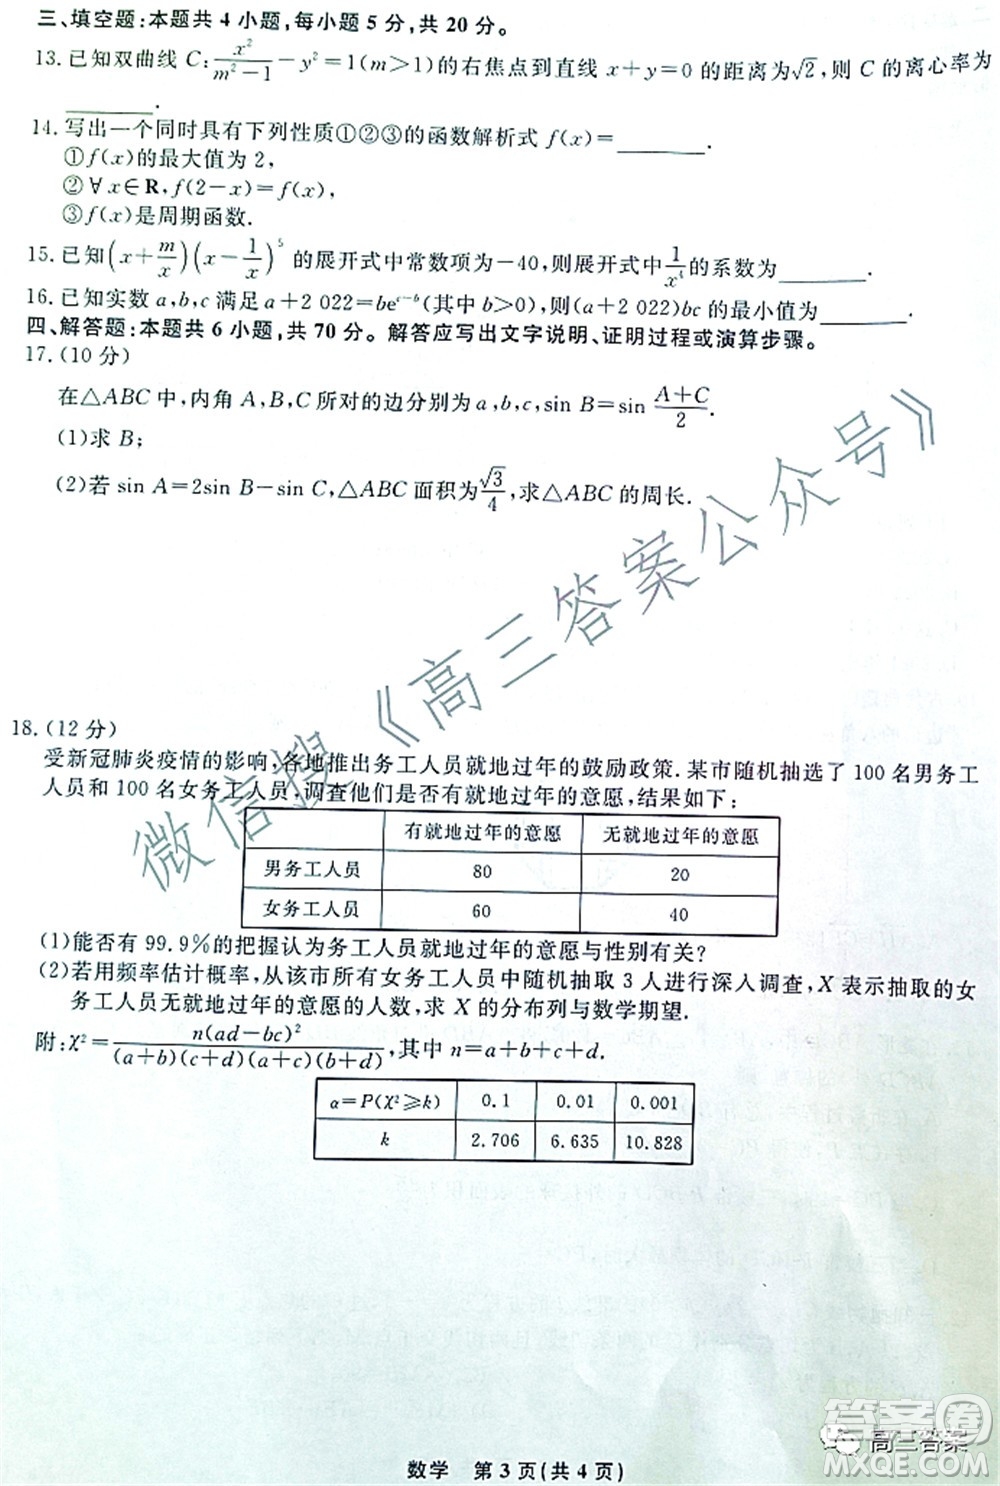 三、填空题:本题共 4 小题,每小题 5 分,共 20 分。
13. 已知双曲线 C: x²/(m²−1) − y² = 1(m>1)的右焦点到直线 x+y=0 的距离为√2,则 C 的离心率为
______.
14. 写出一个同时具有下列性质①②③的函数解析式 f(x)=______
①f(x)的最大值为 2,
②∀x∈R,f(2−x)=f(x),
③f(x)是周期函数.
15. 已知(x+m/x)(x−1/x)⁵ 的展开式中常数项为−40,则展开式中 1/x⁴ 的系数为______.
16. 已知实数 a,b,c 满足 a+2 022=be^(c−b)(其中 b>0),则(a+2 022)bc 的最小值为______.
四、解答题:本题共 6 小题,共 70 分。解答应写出文字说明、证明过程或演算步骤。
17. (10 分)
在△ABC 中,内角 A,B,C 所对的边分别为 a,b,c,sin B=sin (A+C)/2.
(1)求 B;
(2)若 sin A=2sin B−sin C,△ABC 面积为 √3/4,求△ABC 的周长.
18. (12 分)
受新冠肺炎疫情的影响,各地推出务工人员就地过年的鼓励政策. 某市随机抽选了 100 名男务工
人员和 100 名女务工人员,调查他们是否有就地过年的意愿,结果如下:
有就地过年的意愿 无就地过年的意愿
男务工人员 80 20
女务工人员 60 40
(1)能否有 99.9%的把握认为务工人员就地过年的意愿与性别有关?
(2)若用频率估计概率,从该市所有女务工人员中随机抽取 3 人进行深入调查,X 表示抽取的女
务工人员无就地过年的意愿的人数,求 X 的分布列与数学期望.
附:χ²= n(ad−bc)²/((a+b)(c+d)(a+c)(b+d)),其中 n=a+b+c+d.
α=P(χ²≥k) 0.1 0.01 0.001
k 2.706 6.635 10.828
微信搜《高三答案公众号》
答案圈
高三答案
数学 第 3 页(共 4 页)